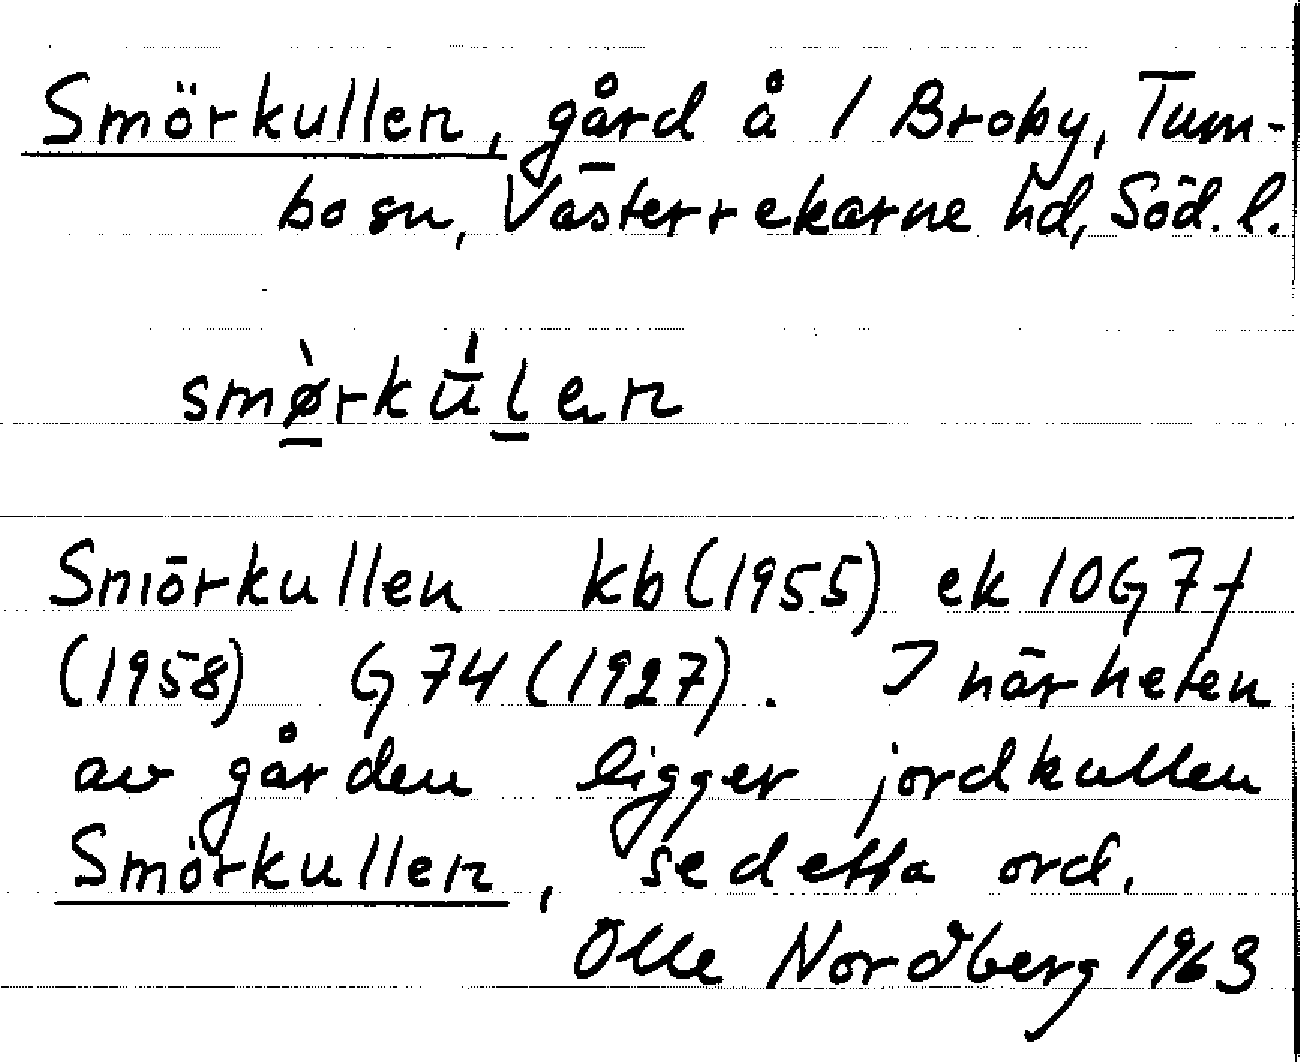 Smörkullen, gård å 1 Broby, Tum-
bo sn, Västerrekarne hd, Söd. l.
smø̀rkú̄len
Smörkullen kb (1955) ek 10G7f
(1958) G74 (1927). I närheten
av gården ligger jordkullen
Smörkullen, se detta ord.
Olle Nordberg 1963